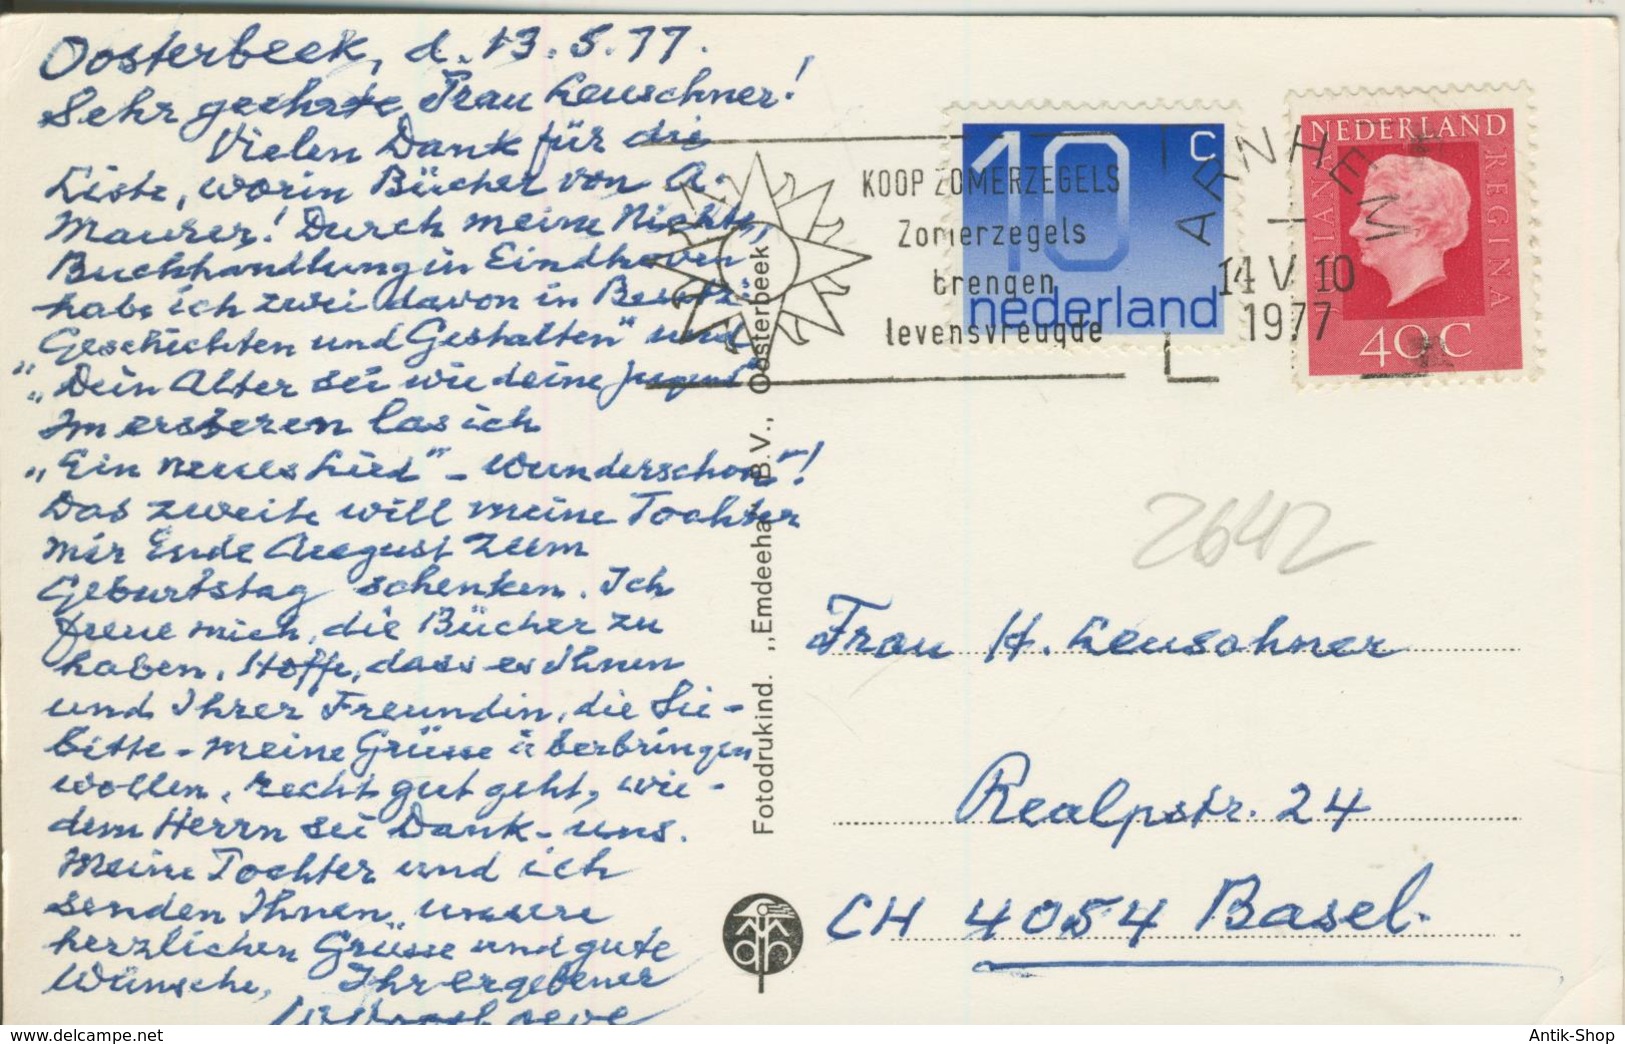 Oosterbeek, d. 13.5.77.
Sehr geehrte Frau Leuschner!
Vielen Dank für die
Liste, worin Bücher von A.
Maurer! Durch meine Nichte,
Buchhandlung in Eindhoven
habe ich zwei davon in Besitz:
„Geschichten und Gestalten" und
„Dein Alter sei wie deine Jugend"
Im ersteren las ich
„Ein neues Lied" - Wunderschön"!
Das zweite will meine Tochter
mir Ende August zum
Geburtstag schenken. Ich
freue mich, die Bücher zu
haben. Hoffe, dass es Ihnen
und Ihrer Freundin, die Sie -
bitte - meine Grüsse überbringen
wollen, recht gut geht, wie -
dem Herrn sei Dank - uns.
Meine Tochter und ich
senden Ihnen, unsere
herzlichen Grüsse und gute
Wünsche, Ihr ergebener
Fotodrukind. „Emdeeha" B.V., Oosterbeek
KOOP ZOMERZEGELS
Zomerzegels
brengen
levensvreugde
ARNHEM
14 V 10
1977
10 c
nederland
NEDERLAND
JULIANA REGINA
40 C
2642
Frau H. Leuschner
Realpstr. 24
CH 4054 Basel.
delcampe.net
Antik-Shop